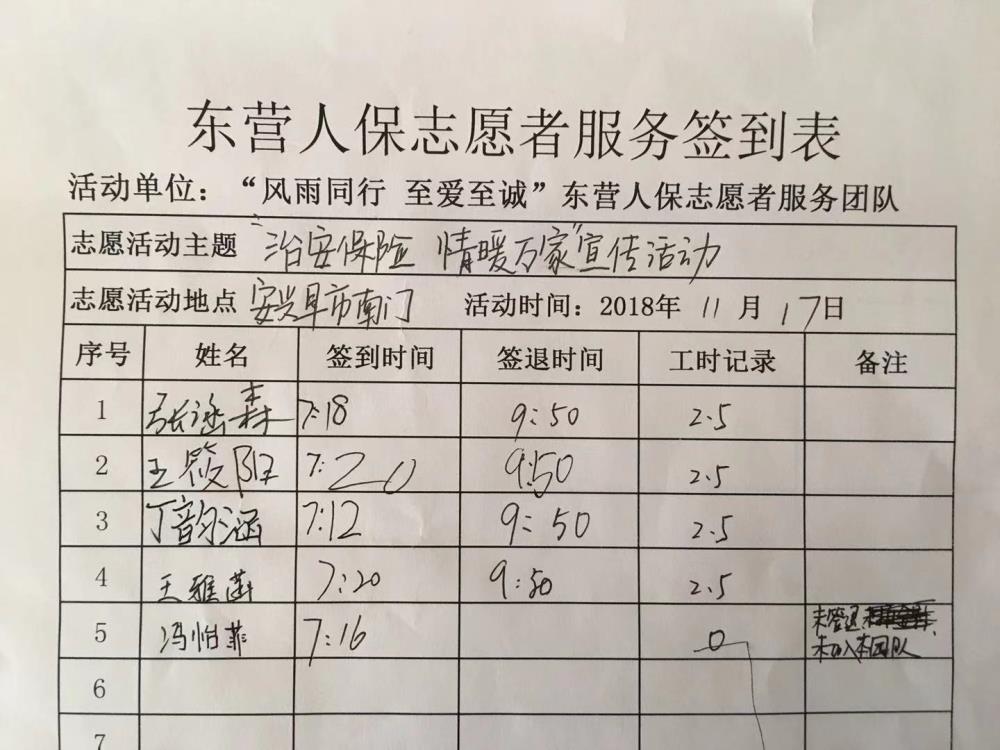 东营人保志愿者服务签到表
活动单位：“风雨同行 至爱至诚”东营人保志愿者服务团队
志愿活动主题 “治安保险 情暖万家”宣传活动
志愿活动地点 安兴早市南门 活动时间：2018年 11 月 17日
序号 姓名 签到时间 签退时间 工时记录 备注
1 张涵森 7:18 9:50 2.5
2 王筱阳 7:20 9:50 2.5
3 丁韵涵 7:12 9:50 2.5
4 王雅菡 7:20 9:50 2.5
5 冯怡菲 7:16 0 未签退
未加入本团队
6
7